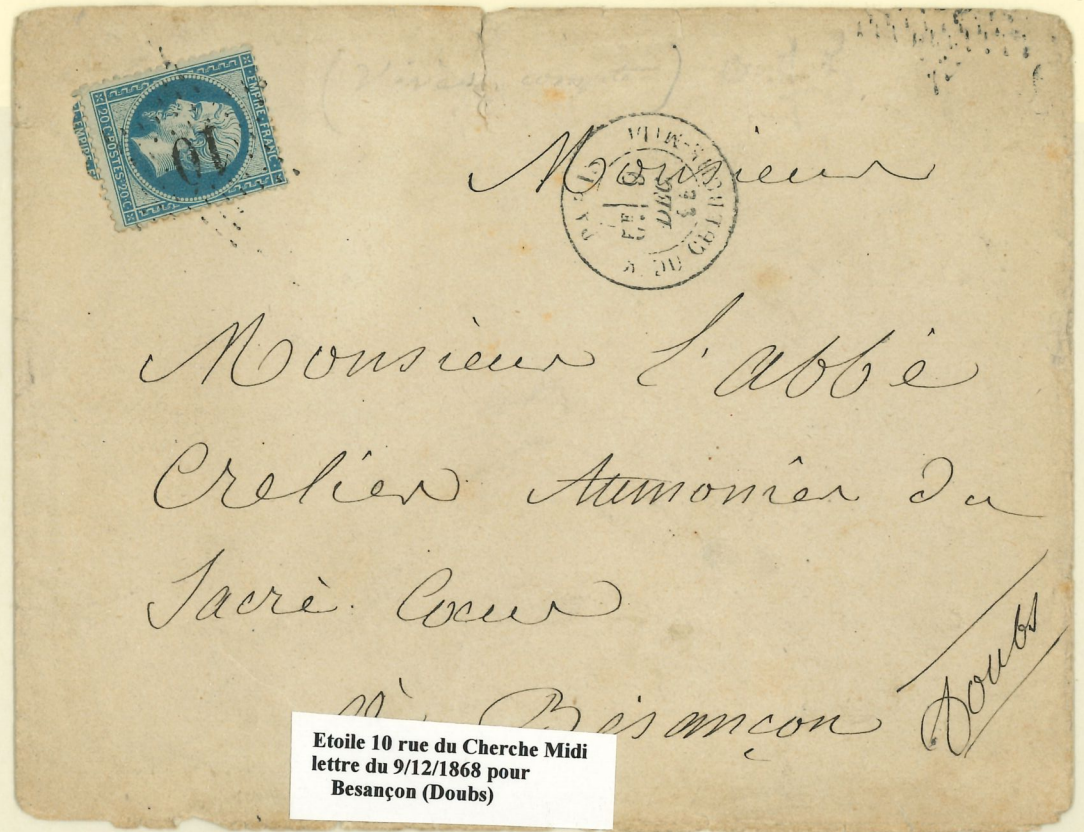 EMPIRE FRANC.
20c POSTES 20c
10
PARIS
R. DU CHERCHE-MIDI
5E
9
DEC
Monsieur
Monsieur l'abbé
Crelier Aumonier du
Sacré Coeur
à Besançon
Doubs
Etoile 10 rue du Cherche Midi
lettre du 9/12/1868 pour
Besançon (Doubs)